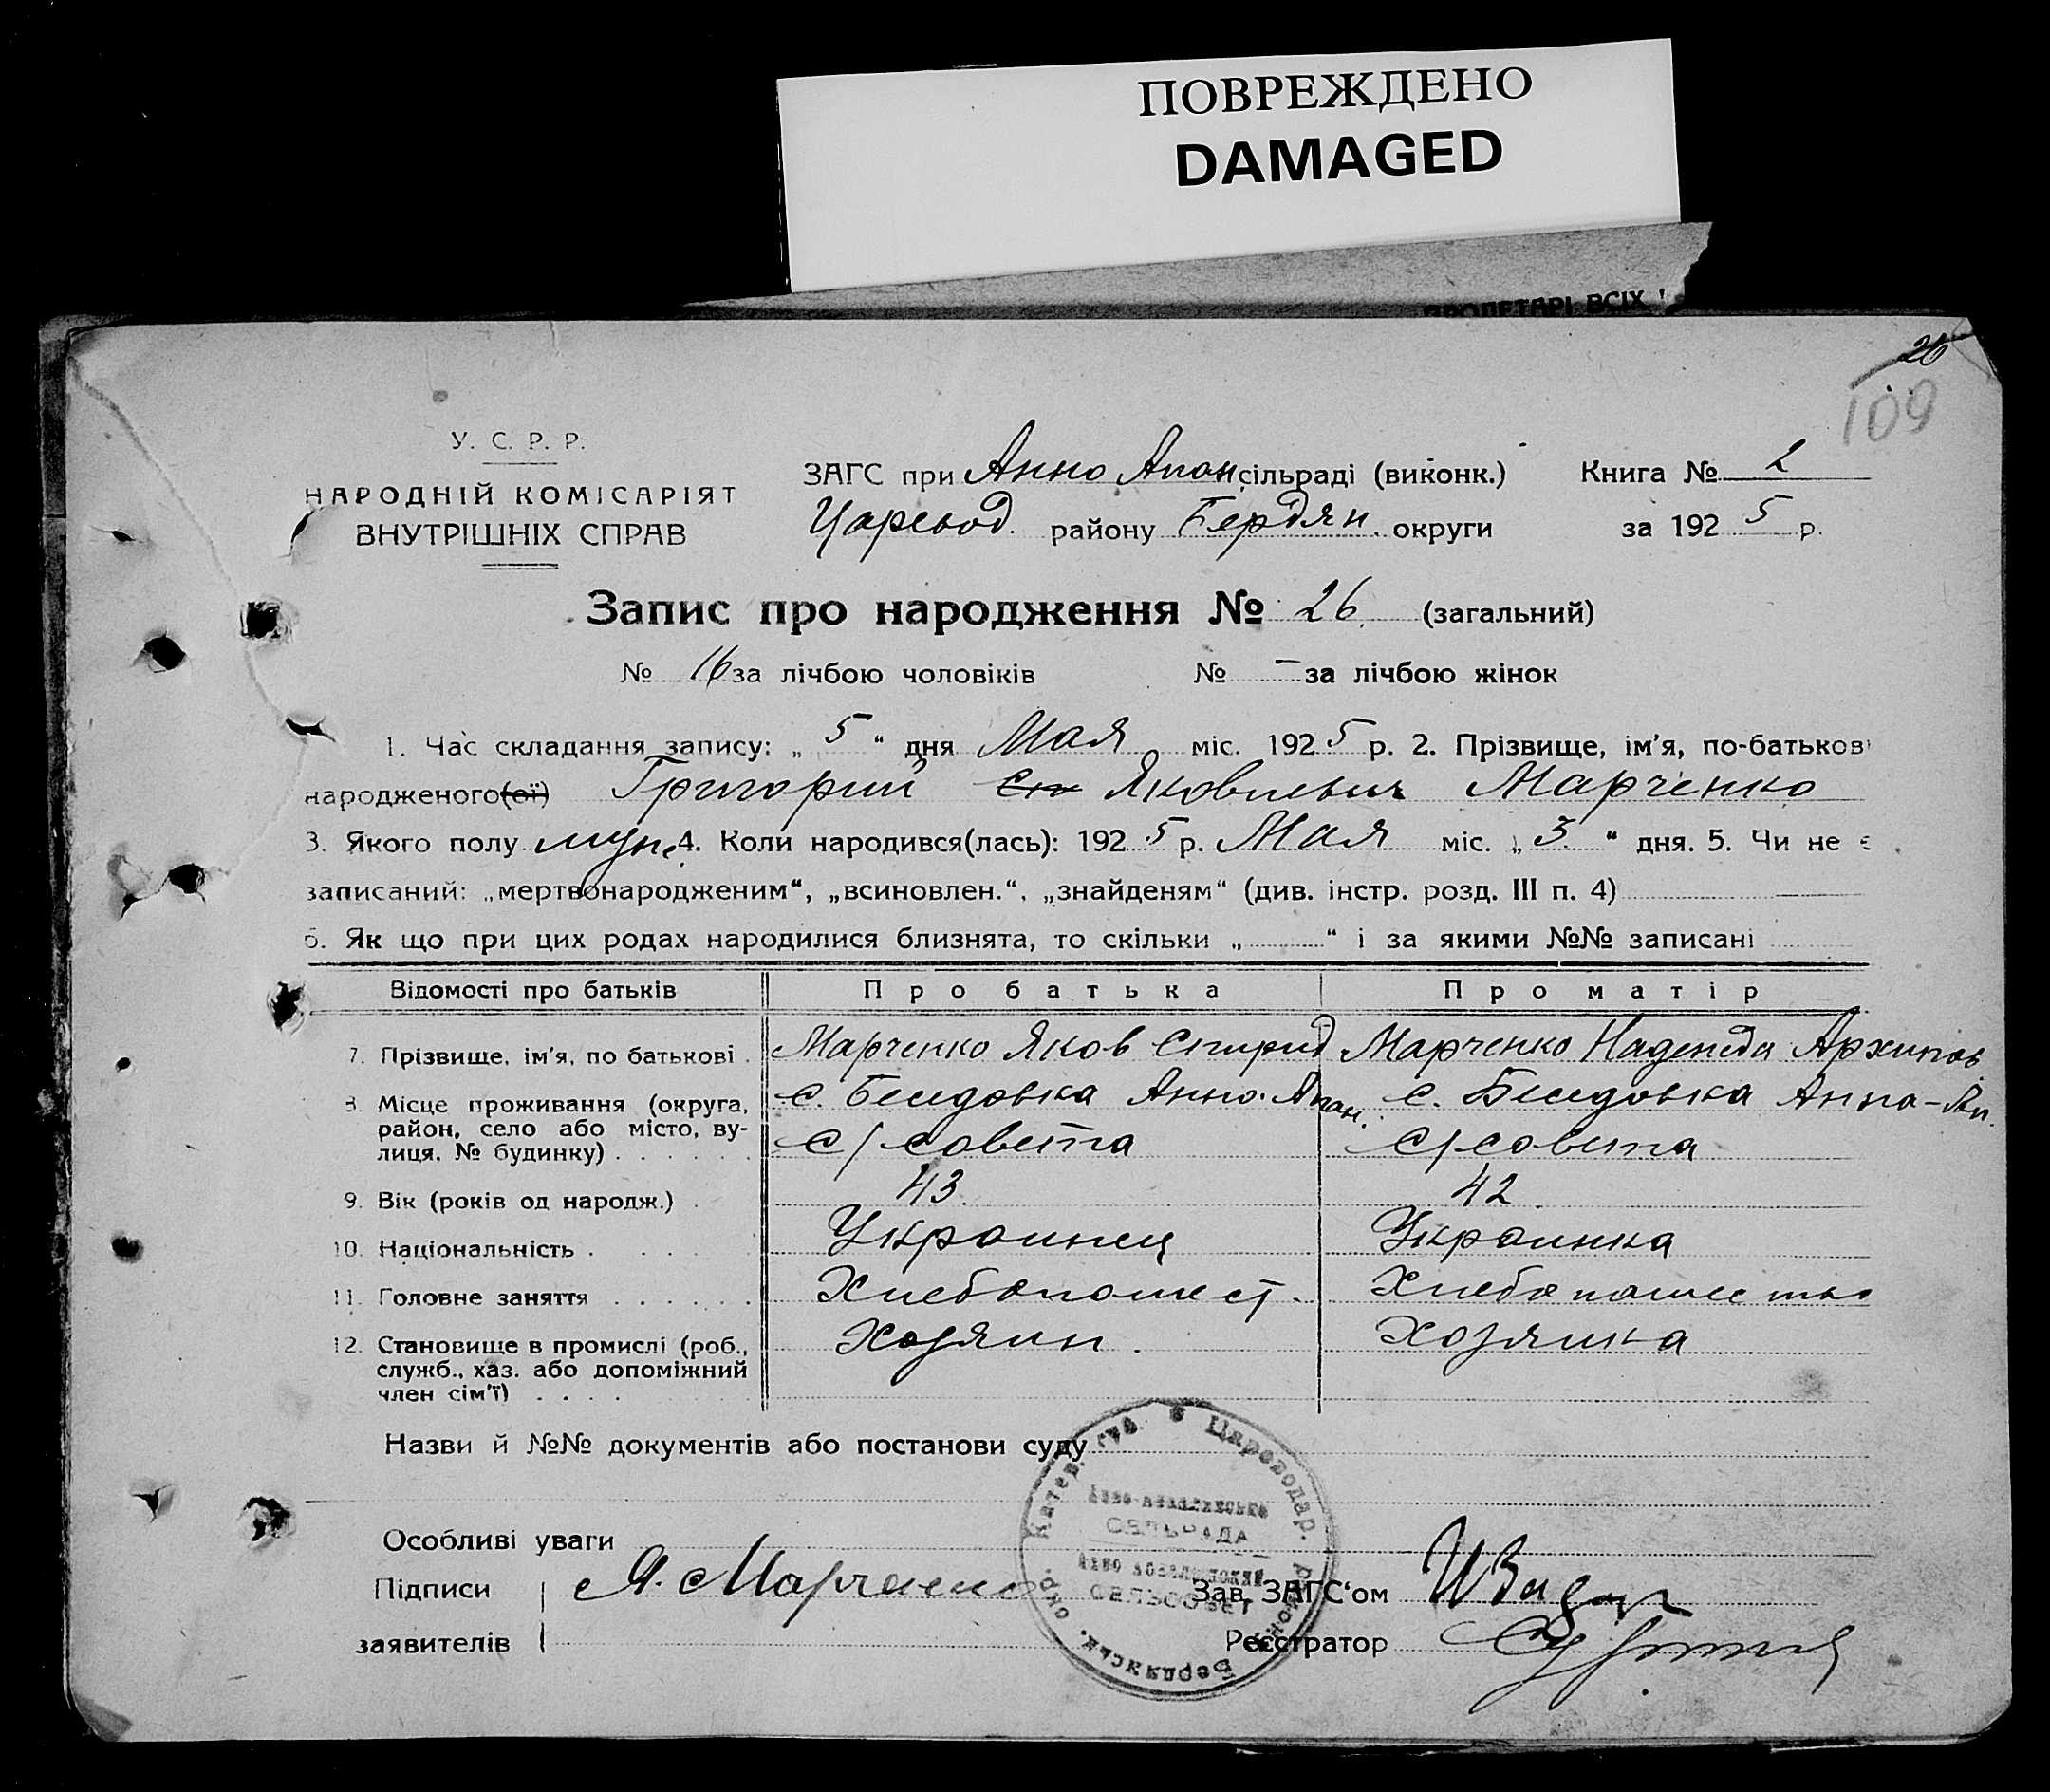 ПОВРЕЖДЕНО
DAMAGED
ПРОЛЕТАРІ ВСІХ
26
109
У. С. Р. Р.
НАРОДНІЙ КОМІСАРІЯТ
ВНУТРІШНІХ СПРАВ
ЗАГС при Анно Апон сільраді (виконк.) Книга № 2
Царевод. району Бердян. округи за 1925 р.
Запис про народження № 26. (загальний)
№ 16 за лічбою чоловіків № – за лічбою жінок
1. Час складання запису: „ 5 “ дня Мая міс. 1925 р. 2. Прізвище, ім'я, по-батькові
народженого(ої) Григорий Яковлевич Марченко
3. Якого полу муж. 4. Коли народився(лась): 1925 р. Мая міс. „ 3. “ дня. 5. Чи не є
записаний: „мертвонародженим“, „всиновлен.“, „знайденям“ (див. інстр. розд. III п. 4)
6. Як що при цих родах народилися близнята, то скільки „ “ і за якими №№ записані
Відомості про батьків Про батька Про матір
7. Прізвище, ім'я, по батькові . Марченко Яков Спирид Марченко Надежда Архипов
8. Місце проживання (округа, район, село або місто, вулиця, № будинку) . . . . . . с. Беседовка Анно-Апон. с/совета с. Беседовка Анно-Ап. с/совета
9. Вік (років од народж.) . 43. 42
10. Національність . . . . . Украинец Украинка
11. Головне заняття . . . . . . Хлебопашест. Хлебопашество
12. Становище в промислі (роб., служб., хаз. або допоміжний член сім'ї) . . . . Хозяин. Хозяйка
Назви й №№ документів або постанови суду
Катер. губ. Цареводар. району Бердянськ. окр.
СЕЛЬРАДА
СЕЛЬСОВЕТ
Особливі уваги
Підписи Я. Марченко Зав. ЗАГС'ом
заявителів Реєстратор